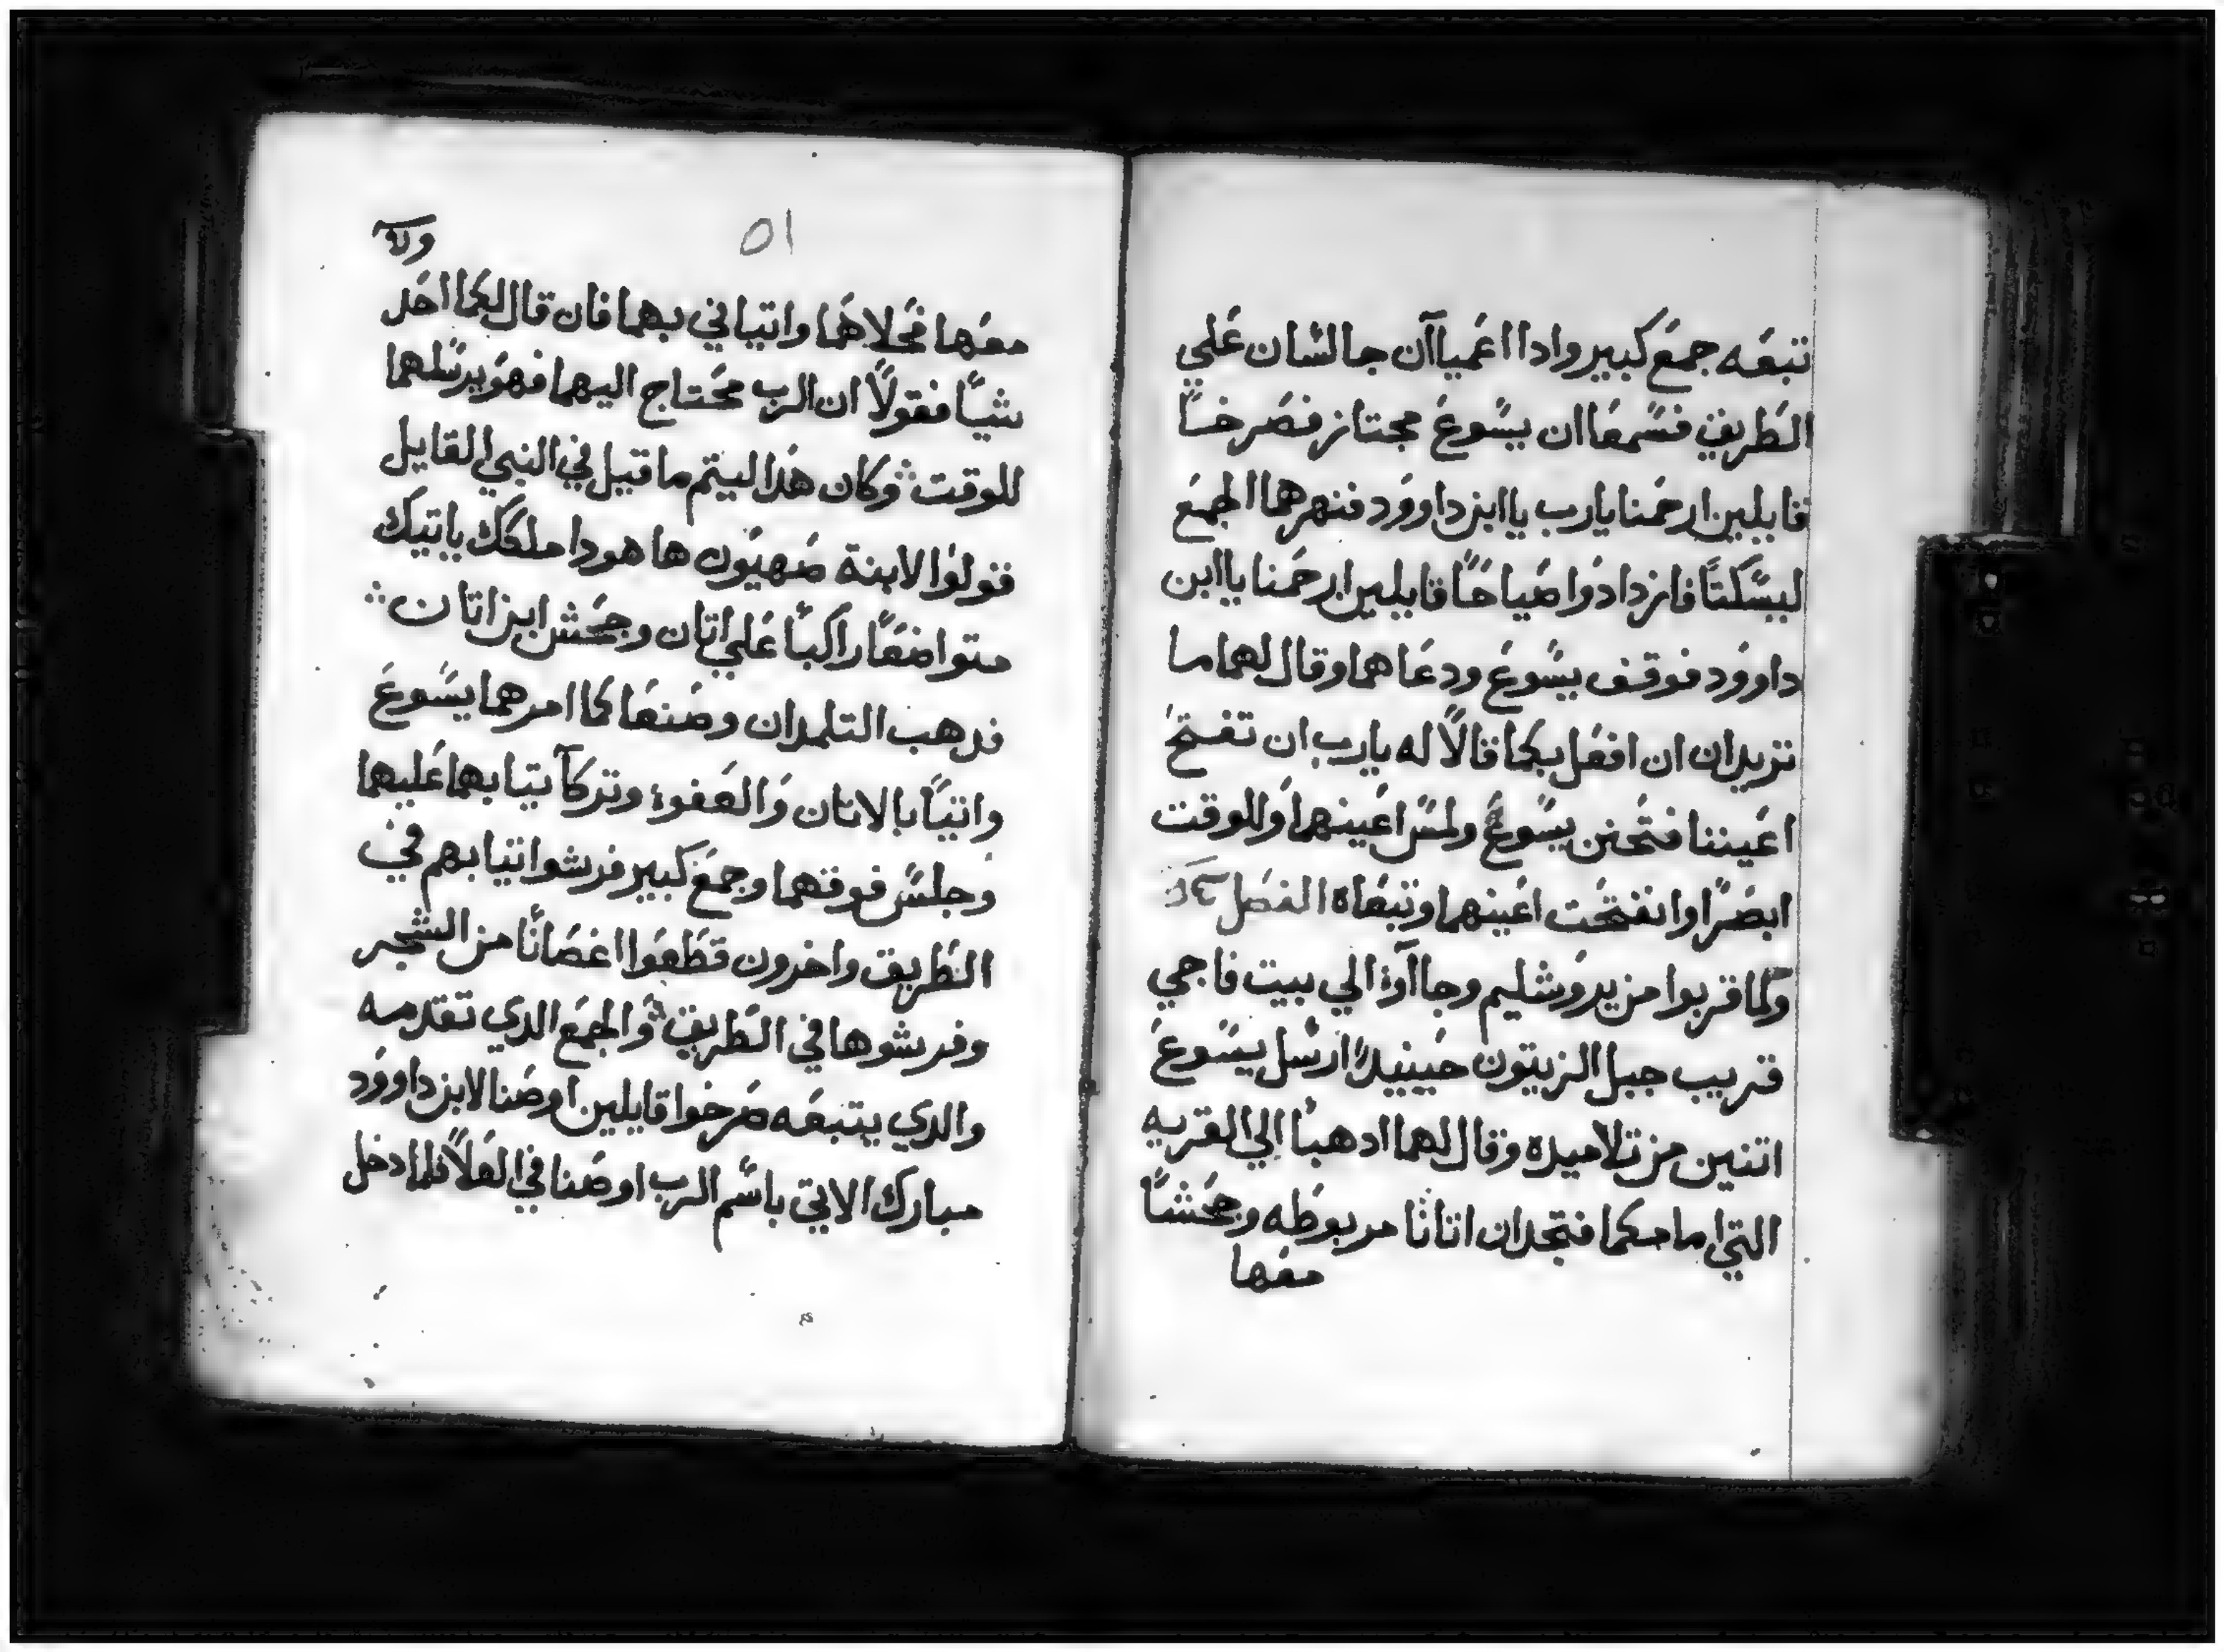 تتبعه جمع كبير وادا اعميا آن جالسان علي
الطريق فسمعا ان يسوع مجتاز فصرخا
قايلين ارحمنا يارب يا ابن داوود فنهرهما الجمع
ليسكتا فازدادوا صياحا قايلين ارحمنا يا ابن
داوود فوقف يسوع ودعاهما وقال لهما ما
تريدان ان افعل بكما قالا له يارب ان تفتح
اعيننا فتحنن يسوع ولمس اعينهما وللوقت
ابصرا وانفتحت اعينهما وتبعاه الفصل
ولما قربوا من يروشليم وجاآوا الي بيت فاجي
قريب جبل الزيتون حينيدا ارسل يسوع
اتنين من تلاميده وقال لهما ادهبا الي القريه
التي امامكما فتجدان اتانا مربوطه وجحشا
معها
٥١
معها فحلاهما واتياني بهما فان قال لكما احد
شيا فقولا ان الرب محتاج اليهما فهو يرسلهما
للوقت وكان هدا ليتم ما قيل في النبي القايل
قولوا لابنة صهيون ها هودا ملكك ياتيك
متواضعا راكبا علي اتان وجحش ابن اتان
فدهب التلمدان وصنعا كما امرهما يسوع
واتيا بالاتان والعفو وتركا تيابهما عليهما
وجلس فوقهما وجمع كبير فرشوا تيابهم في
الطريق واخرون قطعوا اغصانا من الشجر
وفرشوها في الطريق والجمع الدي تقدمه
والدي يتبعه صرخوا قايلين اوصنا لابن داوود
مبارك الاتي باسم الرب اوصنا في العلا فلما دخل